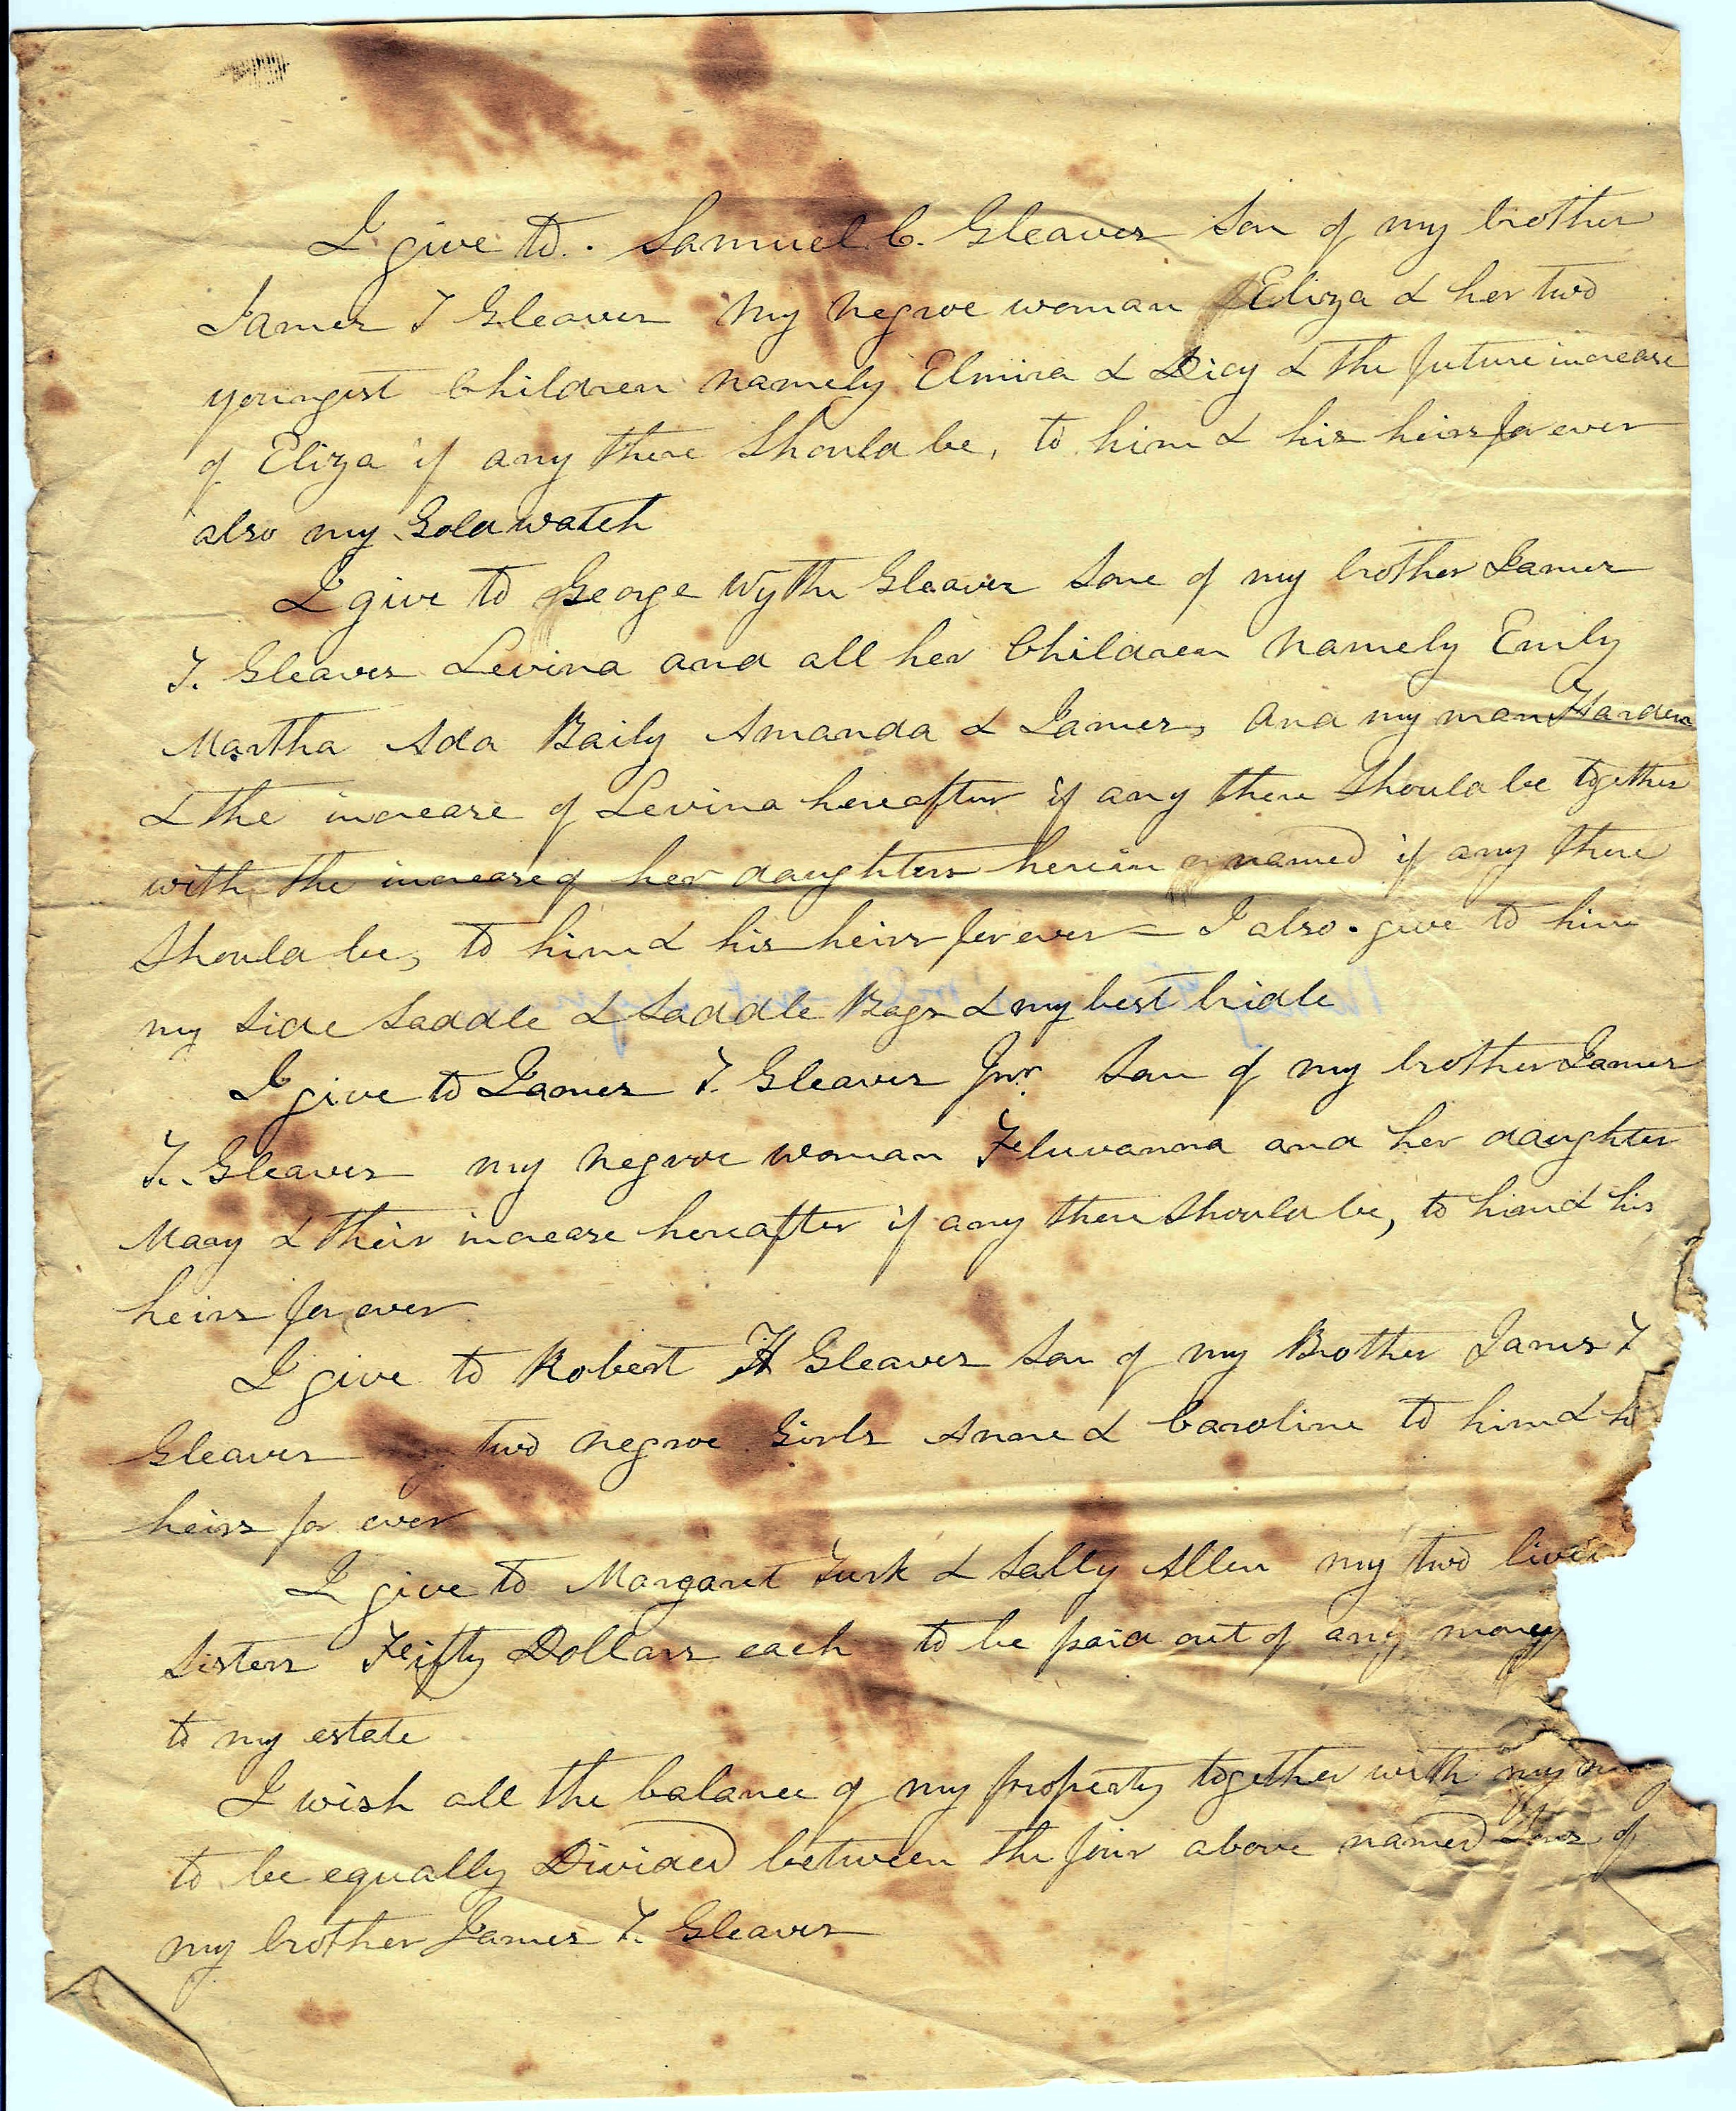 I give to. Samuel C. Gleaves Son of my brother
James T Gleaves My negroe woman Eliza & her two
youngest Children namely Elmira & Dicy & the future increase
of Eliza if any there Should be, to him & his heirs for ever
also my Gold watch
I give to George Wythe Gleaves Sone of my brother James
T. Gleaves Levina and all her Children Namely Emily
Martha Ada Baily Amanda & James, and my man Harden
& the increase of Levina hereafter if any there Should be together
with the increase of her daughters herein named if any there
Should be, to him & his heirs for ever = I also. give to him
my Side Saddle & Saddle Bags & my best bridle
I give to James T. Gleaves Jnr. Son of my brother James
T. Gleaves my negroe woman Fluvanna and her daughter
Mary & their increase hereafter if any there Should be, to him & his
heirs for ever
I give to Robert H Gleaves Son of my Brother James T
Gleaves my two negroe Girls Anne & Caroline to him &
heirs for ever
I give to Margaret Turk & Sally Allen my two
Sisters Fifty Dollars each to be paid out of any money
to my estate
I wish all the balance of my property together with my
to be equally Divided between the four above named Sons of
my brother James T. Gleaves